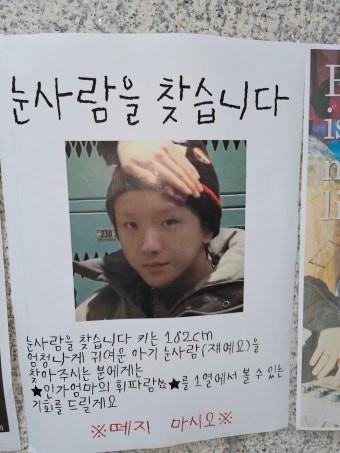 눈사람을 찾습니다
230
눈사람을 찾습니다 키는 182cm
엄청나게 귀여운 아기 눈사람(쟤예요)을
찾아주시는 분에게는
★인가엄마의 휘파람쇼★를 1열에서 볼 수 있는
기회를 드릴게요
※떼지 마시오※